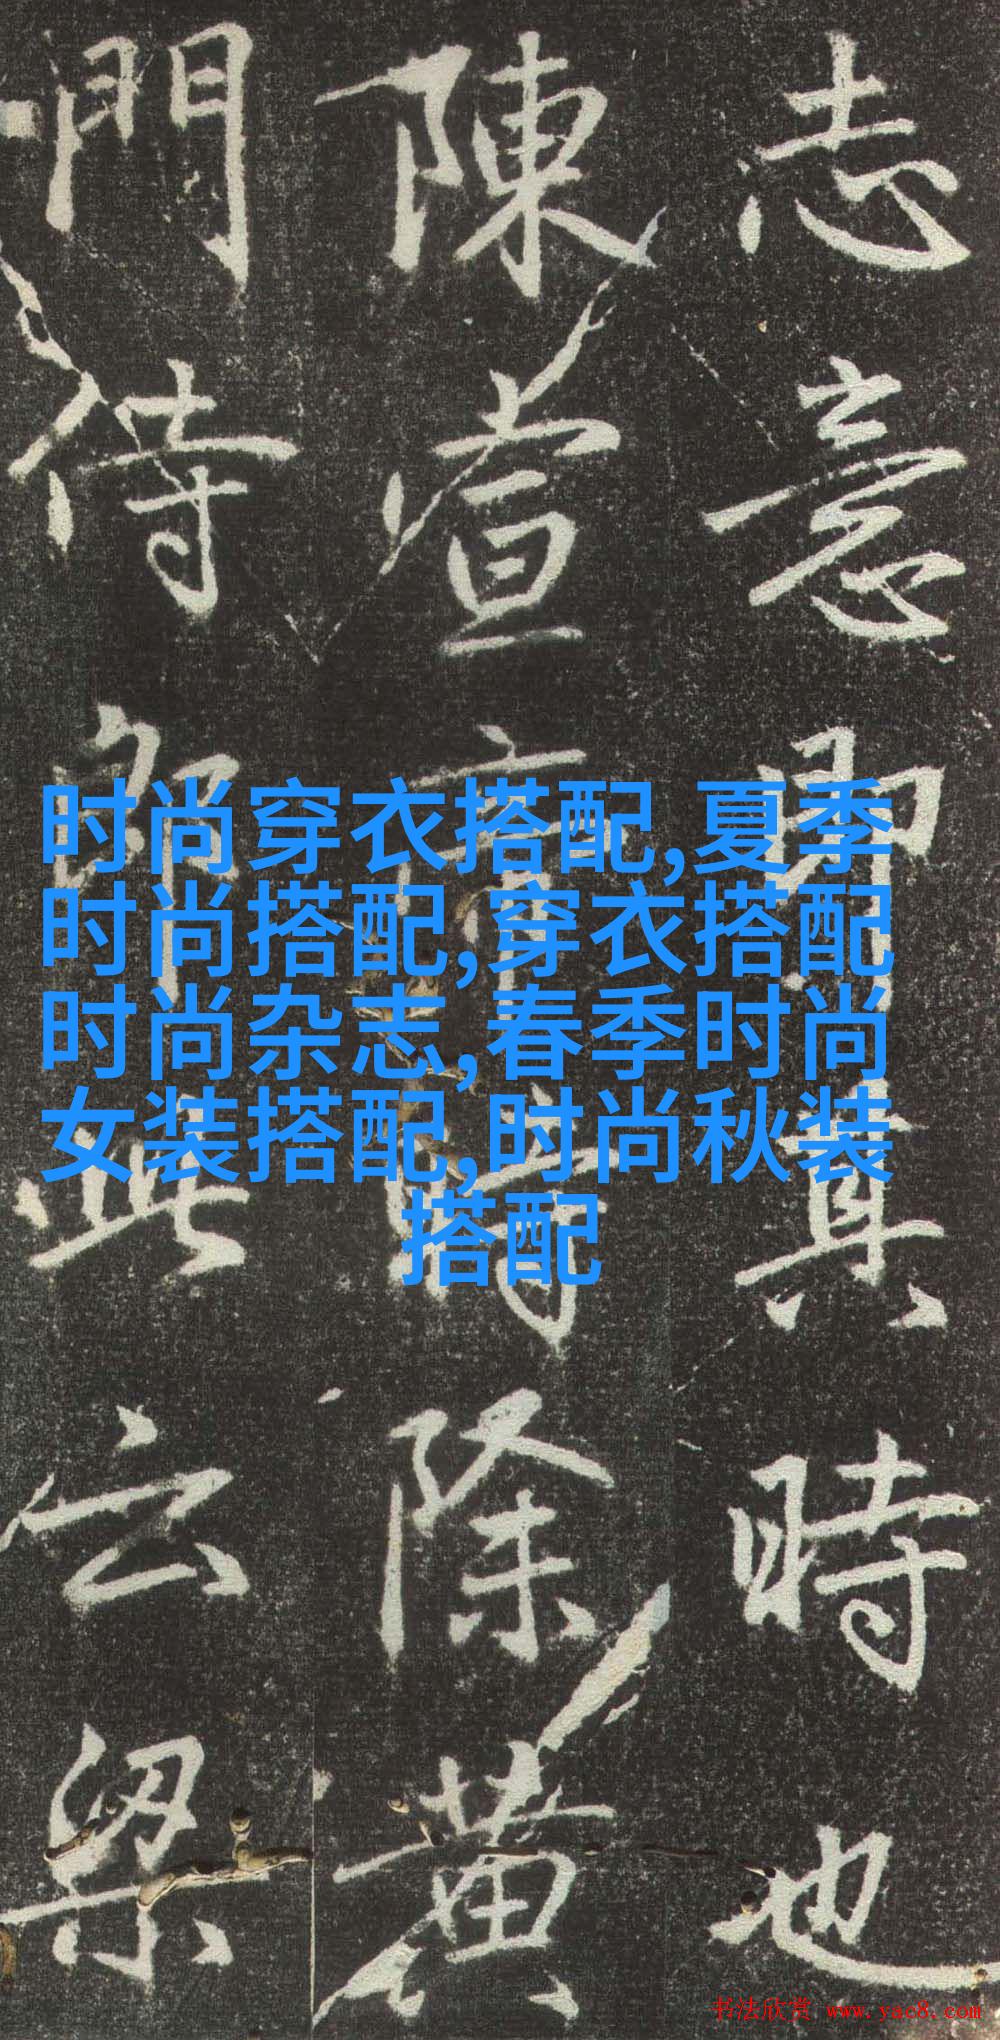 志意即真時也
陳宣帝時除黄
門侍郎此云梁
时尚穿衣搭配,夏季
时尚搭配,穿衣搭配
时尚杂志,春季时尚
女装搭配,时尚秋装
搭配
书法欣赏 www.yac8.com